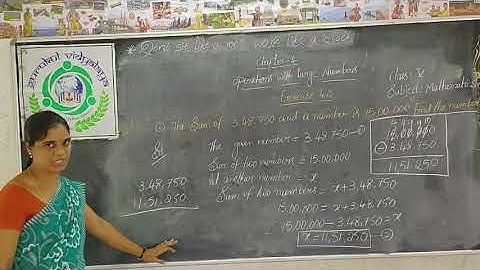 * Don't sit like a rock work like a clock
Chapter-4
Operations with Large Numbers
Exercise 4.2
Class: V
Subject: Mathematics
gurukul vidyalaya
The Sum of 3,48,750 and a number is 15,00,000. Find the number
Sol
The given number = 3,48,750 - ①
Sum of two numbers = 15,00,000
Let another number = x
Sum of two numbers = x+3,48,750
15,00,000 = x+3,48,750
15,00,000 - 3,48,750 = x
x = 11,51,250 - ②
3,48,750
11,51,250
15,00,000
- 3,48,750
11,51,250